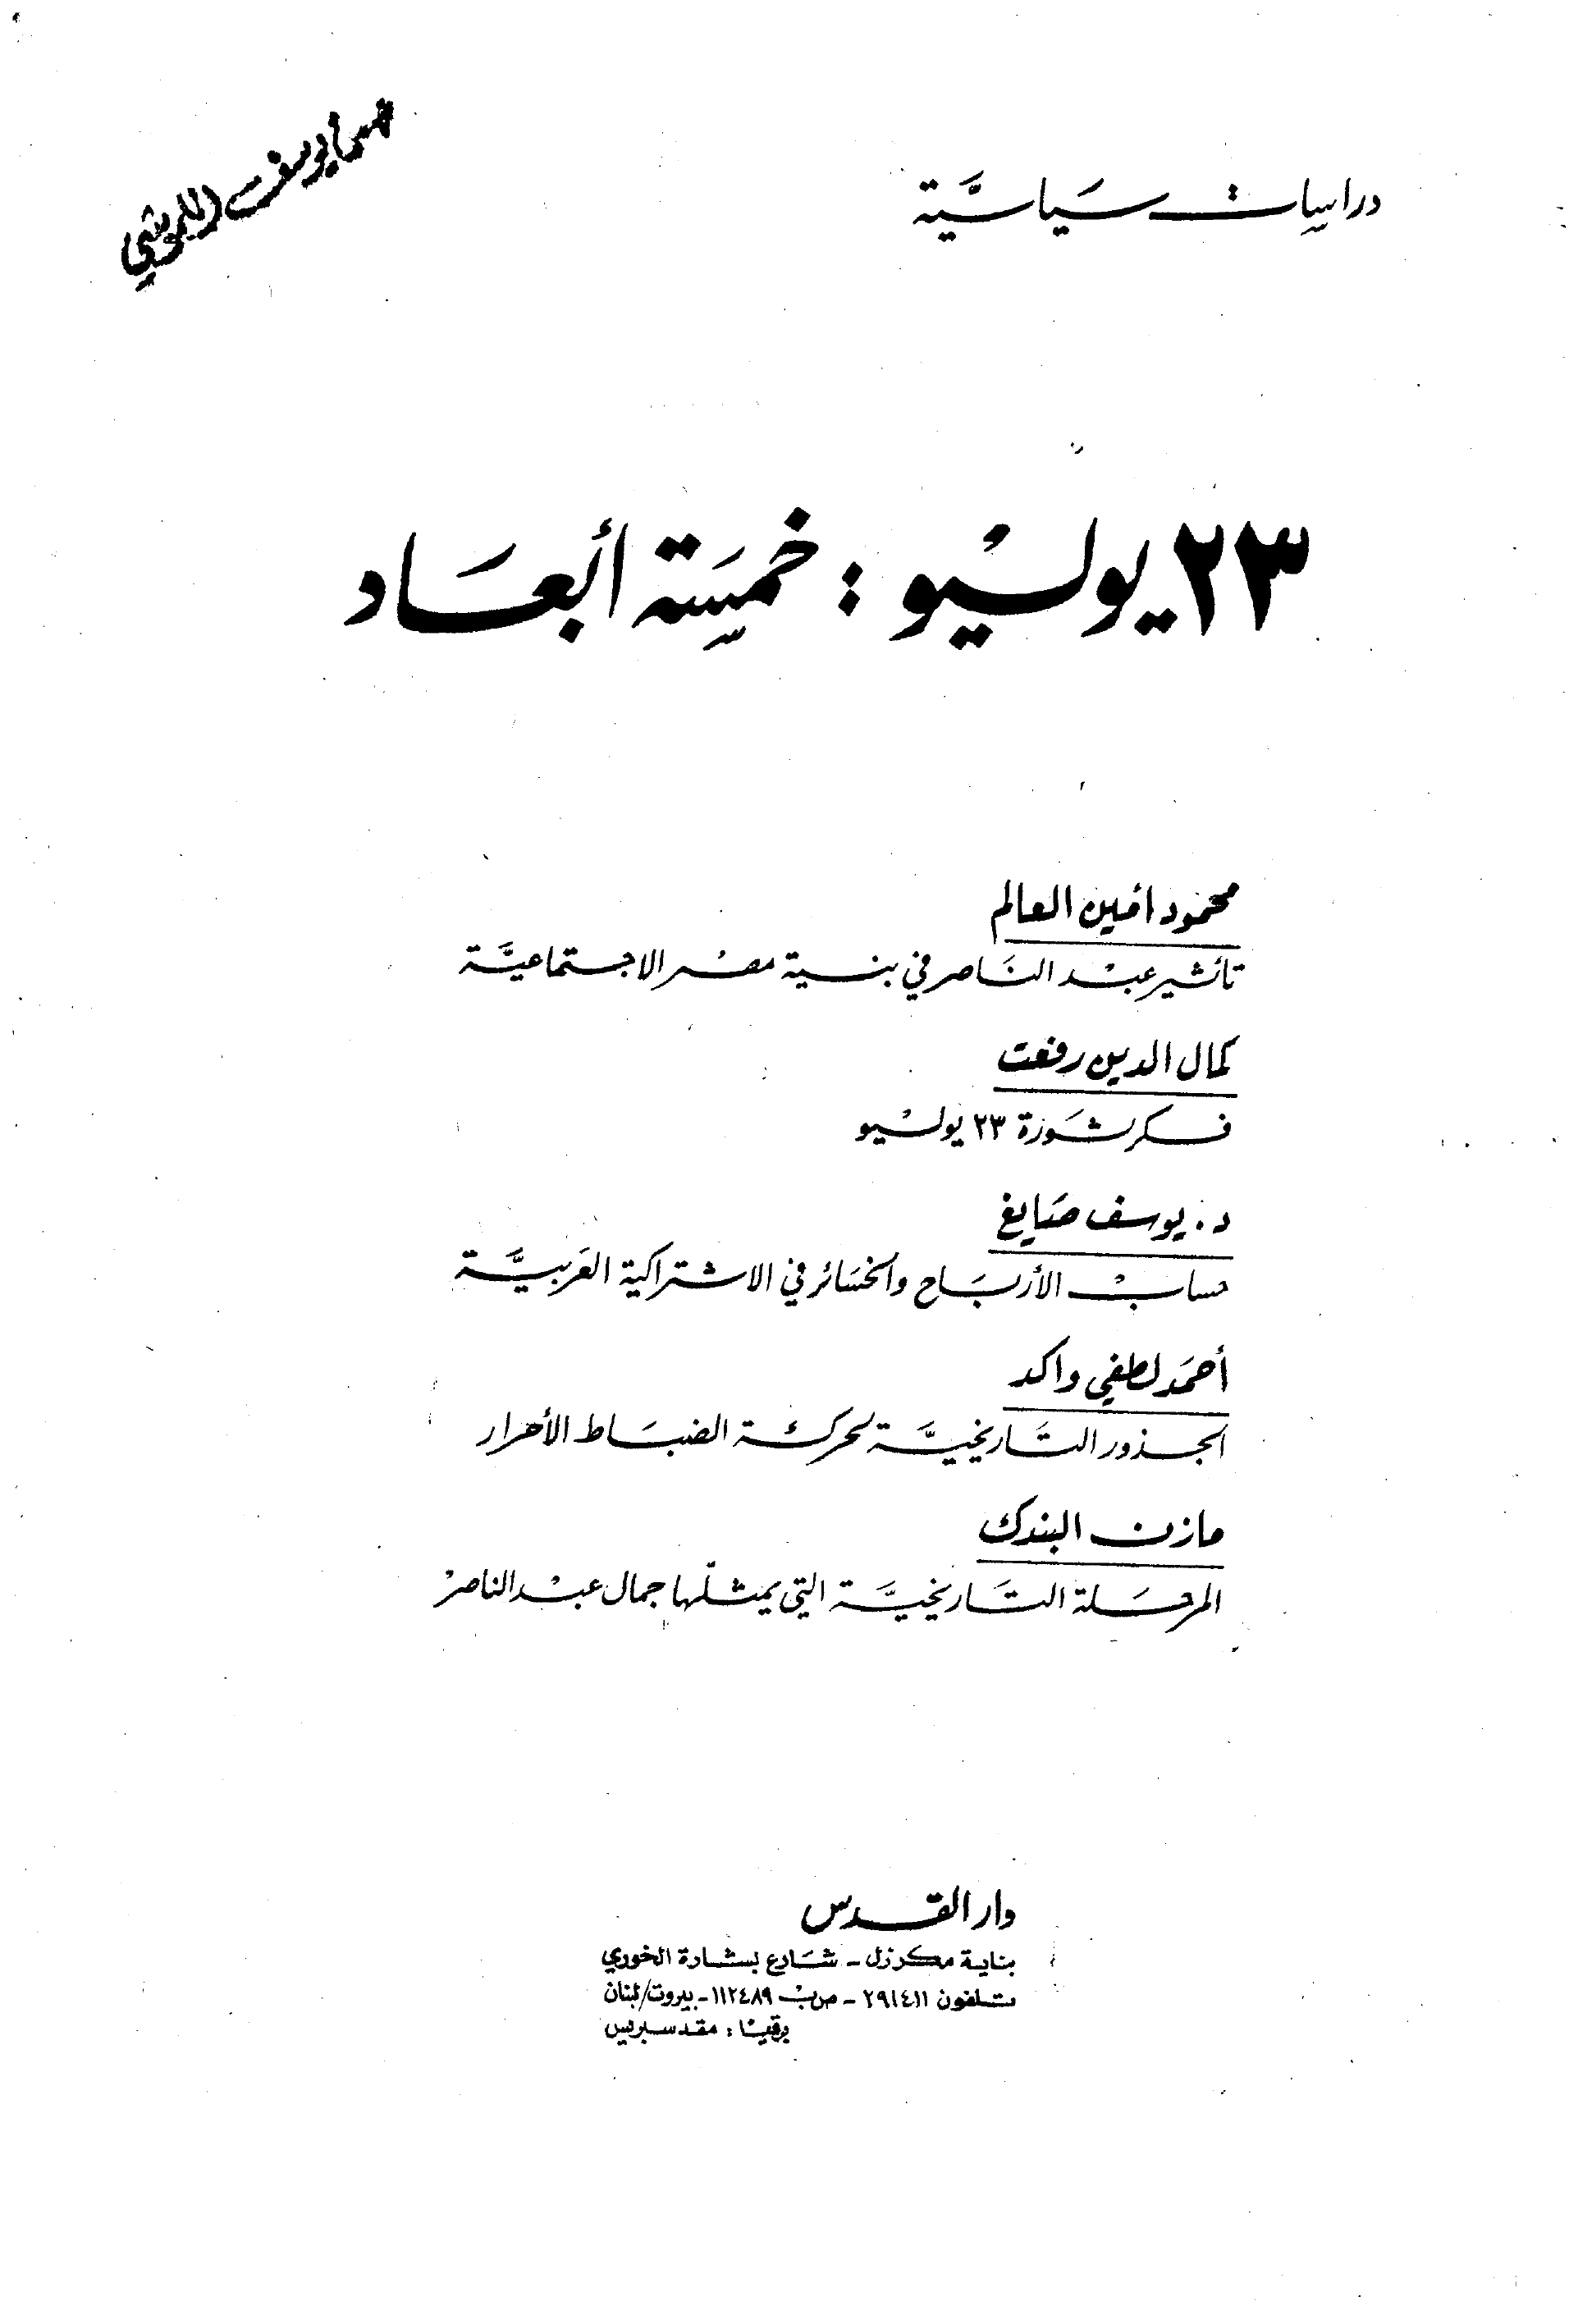 دراسات سياسية
٢٣ يوليو : خمسة أبعاد
محمود أمين العالم
تأثير عبد الناصر في بنية مصر الاجتماعية
كمال الدين رفعت
فكر ثورة ٢٣ يوليو
د. يوسف صايغ
حساب الأرباح والخسائر في الاشتراكية العربية
أحمد لطفي واكد
الجذور التاريخية لحركة الضباط الأحرار
مازن البندك
المرحلة التاريخية التي يمثلها جمال عبد الناصر
دار القدس
بناية مكرزل - شارع بشارة الخوري
تلفون ٢٩١٤١١ - ص ب ١١٢٤٨٩ - بيروت/لبنان
برقيا : مقدسبريس